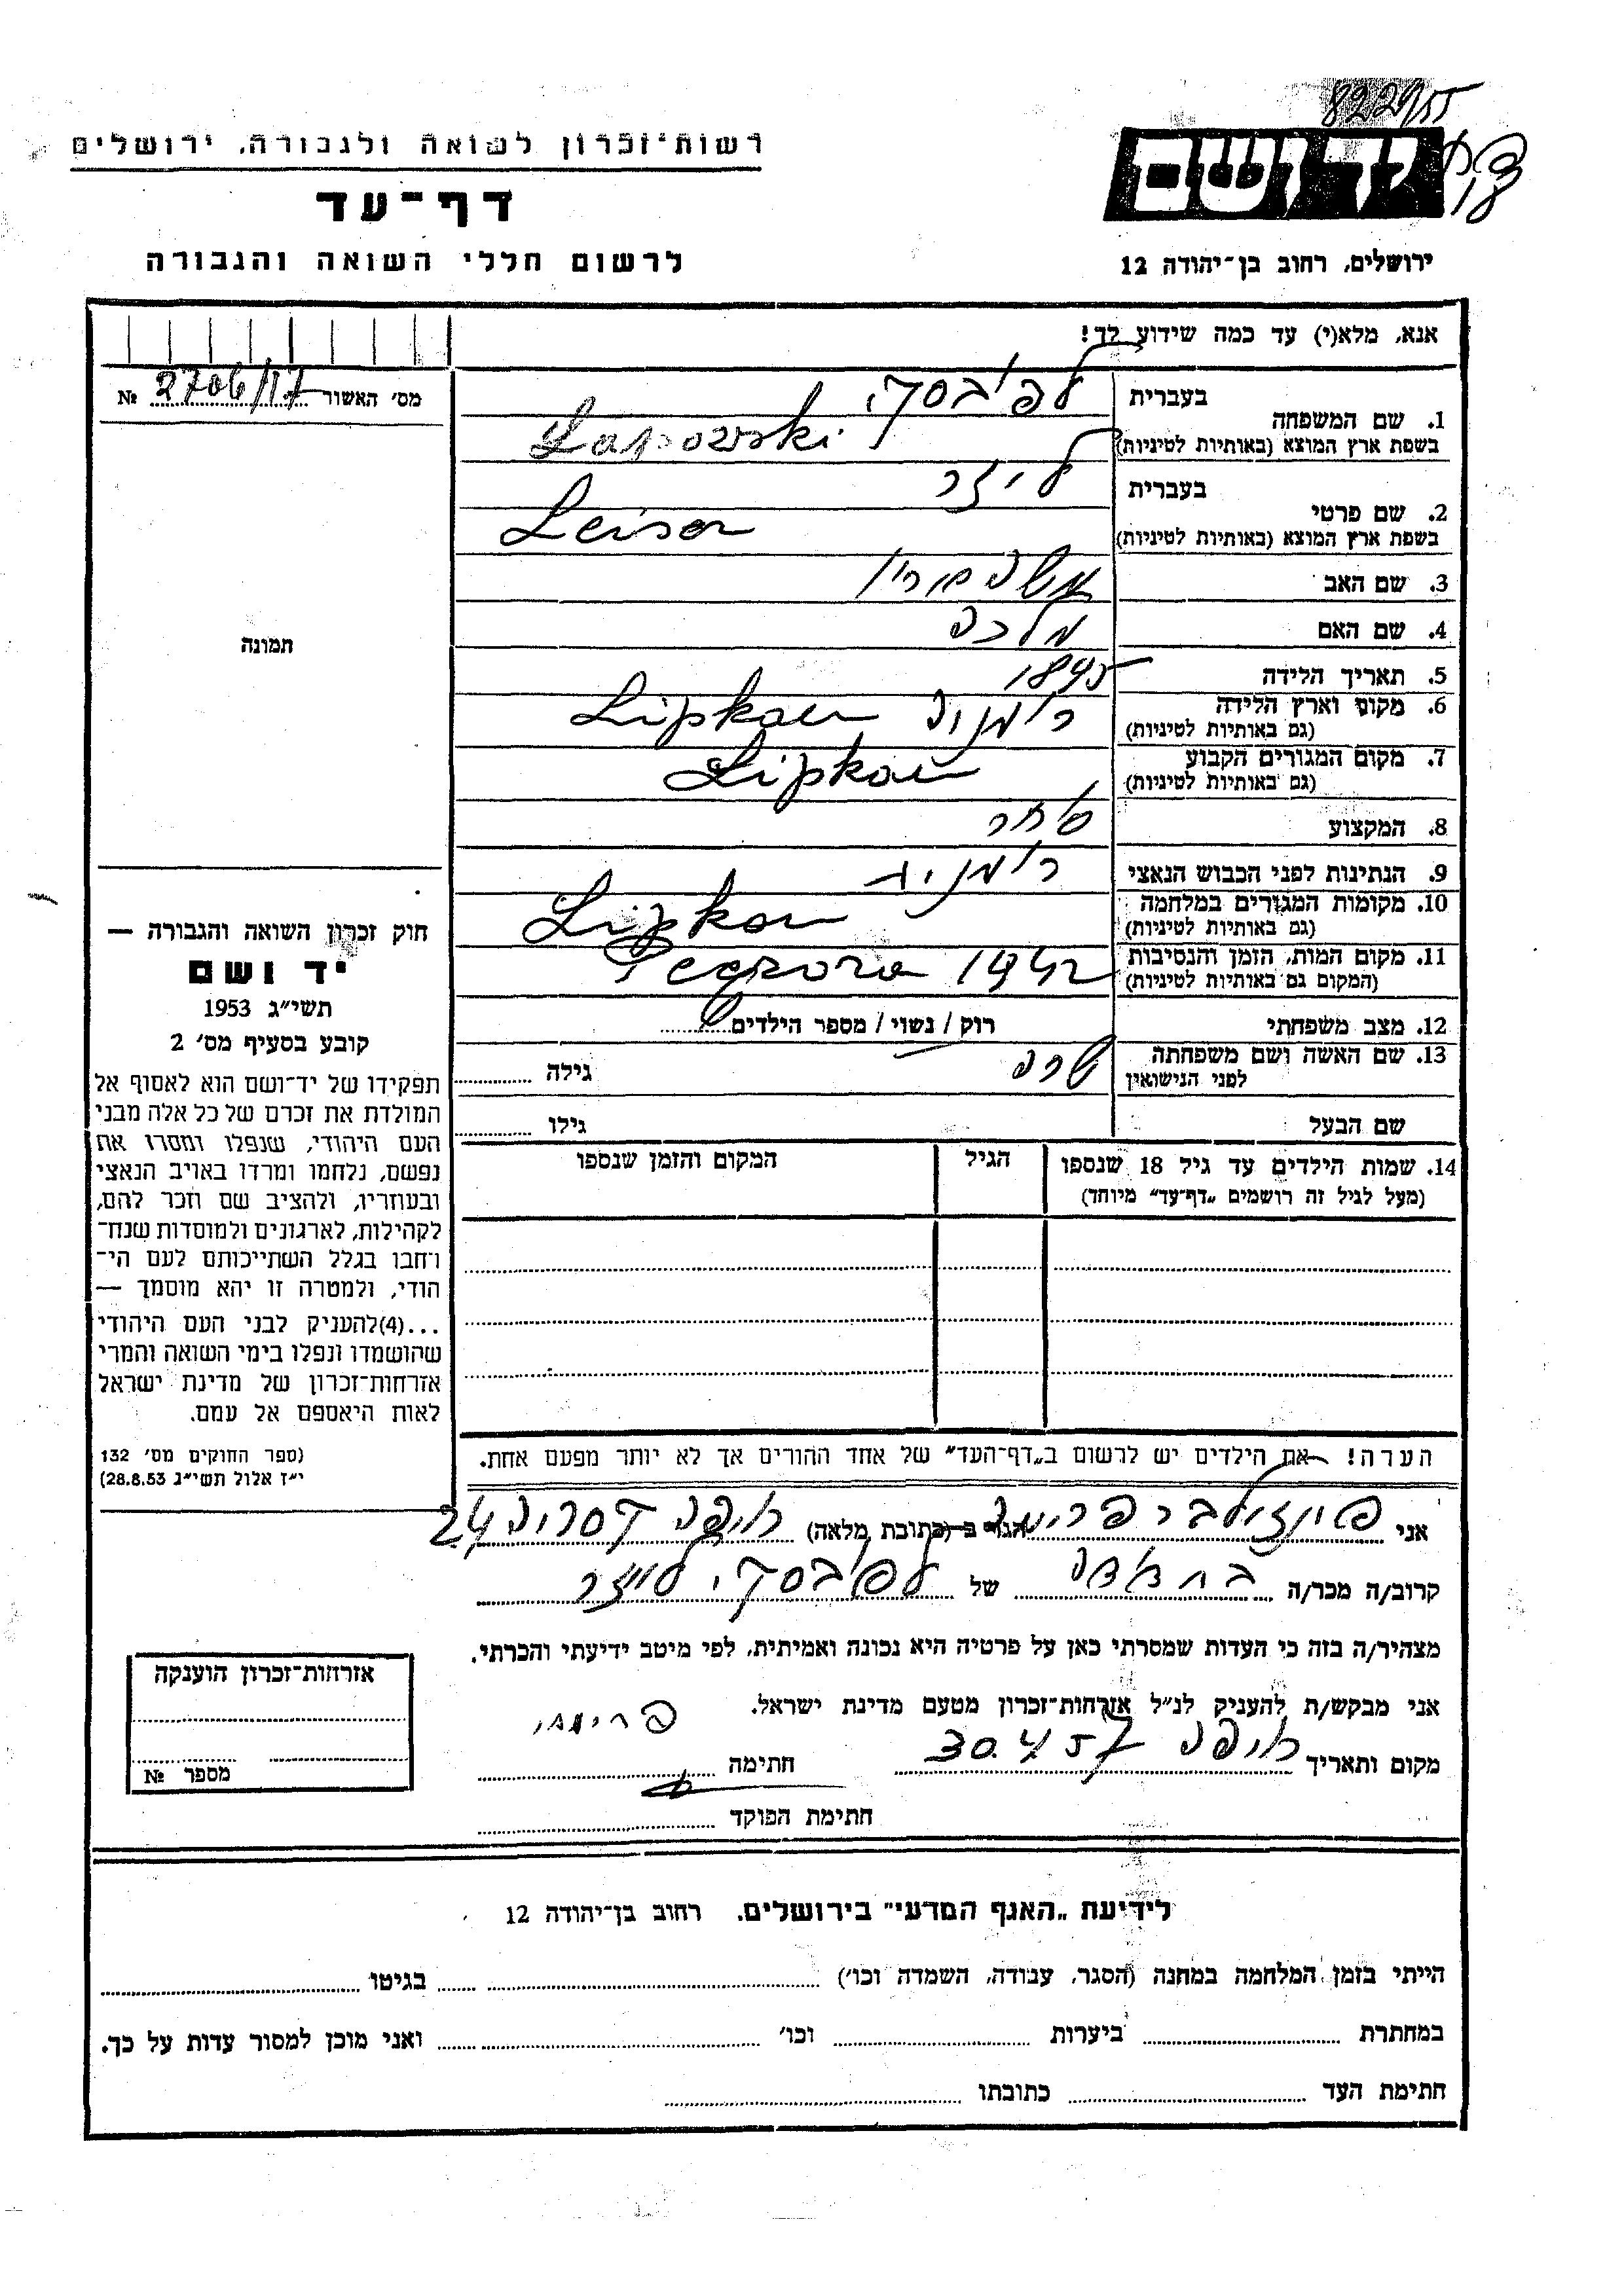 רשות־זכרון לשואה ולגבורה, ירושלים
דף־עד
לרשום חללי השואה והגבורה
יד ושם
ירושלים, רחוב בן־יהודה 12
אנא, מלא(י) עד כמה שידוע לך!
מס׳ האשור № 2706/17
תמונה
1. שם המשפחה
בעברית לפיבסקי
בשפת ארץ המוצא (באותיות לטיניות) Lapowski
2. שם פרטי
בעברית ליזר
בשפת ארץ המוצא (באותיות לטיניות) Leisor
3. שם האב
4. שם האם מלכה
5. תאריך הלידה 1895
6. מקום וארץ הלידה
(גם באותיות לטיניות) רומניה Lipkan
7. מקום המגורים הקבוע
(גם באותיות לטיניות) Lipkan
8. המקצוע סוחר
9. הנתינות לפני הכבוש הנאצי רומנית
10. מקומות המגורים במלחמה
(גם באותיות לטיניות) Lipkon
11. מקום המות, הזמן והנסיבות
(המקום גם באותיות לטיניות) Peczora 1942
12. מצב משפחתי רוק / נשוי / מספר הילדים
13. שם האשה ושם משפחתה
לפני הנישואין שרה גילה
שם הבעל גילו
14. שמות הילדים עד גיל 18 שנספו
(מעל לגיל זה רושמים „דף־עד” מיוחד)
הגיל
המקום והזמן שנספו
הערה! את הילדים יש לרשום ב„דף־העד” של אחד ההורים אך לא יותר מפעם אחת.
חוק זכרון השואה והגבורה —
יד ושם
תשי״ג 1953
קובע בסעיף מס׳ 2
תפקידו של יד־ושם הוא לאסוף אל
המולדת את זכרם של כל אלה מבני
העם היהודי, שנפלו ומסרו את
נפשם, נלחמו ומרדו באויב הנאצי
ובעוזריו, ולהציב שם וזכר להם,
לקהילות, לארגונים ולמוסדות שנח־
רבו בגלל השתייכותם לעם הי־
הודי, ולמטרה זו יהא מוסמך —
...(4)להעניק לבני העם היהודי
שהושמדו ונפלו בימי השואה והמרי
אזרחות־זכרון של מדינת ישראל
לאות היאספם אל עמם.
(ספר החוקים מס׳ 132
י״ז אלול תשי״ג 28.8.53)
אני פרומה הגר ב־(כתובת מלאה) חיפה 24
קרוב/ה מכר/ה של לפיבסקי לייזר
מצהיר/ה בזה כי העדות שמסרתי כאן על פרטיה היא נכונה ואמיתית, לפי מיטב ידיעתי והכרתי.
אני מבקש/ת להעניק לנ״ל אזרחות־זכרון מטעם מדינת ישראל.
מקום ותאריך חיפה 30.4.57 חתימה
חתימת הפוקד
אזרחות־זכרון הוענקה
מספר №
לידיעת „האגף המדעי” בירושלים, רחוב בן־יהודה 12
הייתי בזמן המלחמה במחנה (הסגר, עבודה, השמדה וכו׳) בגיטו
במחתרת ביערות וכו׳ ואני מוכן למסור עדות על כך.
חתימת העד כתובתו